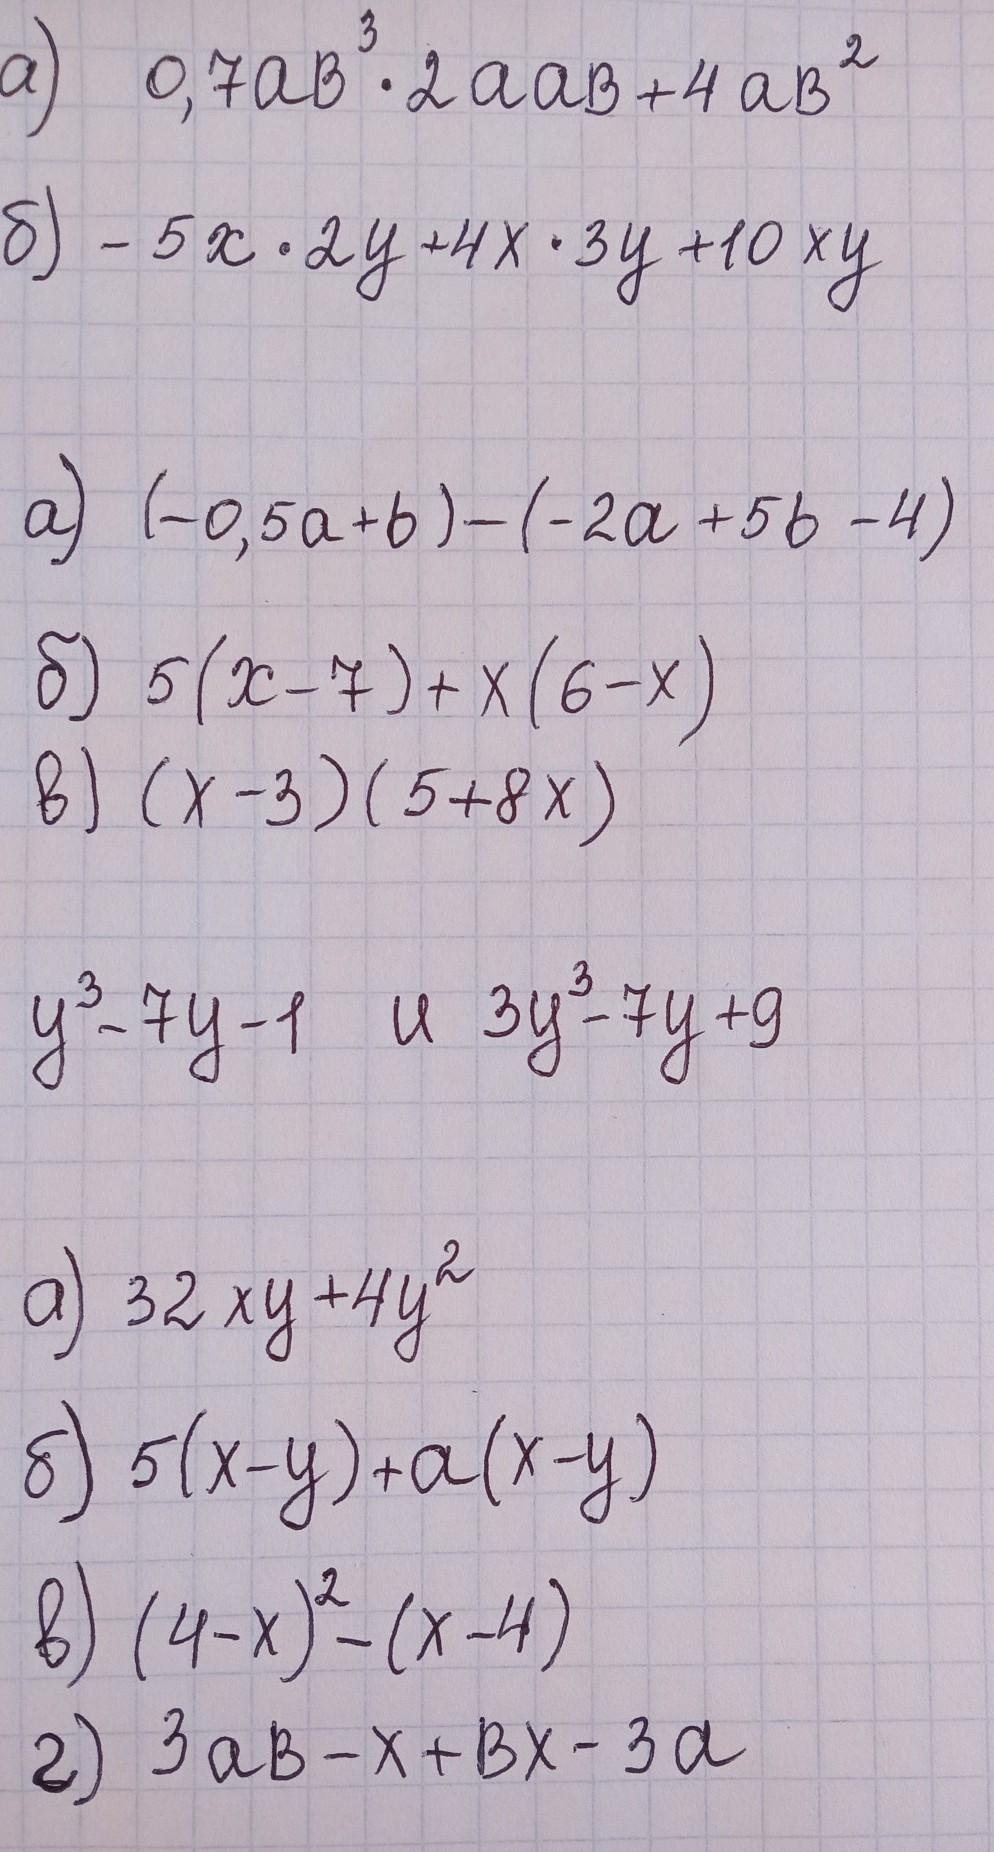 а) 0,7ав³·2аав+4ав²
б) -5x·2y+4x·3y+10xy
а) (-0,5a+b)-(-2a+5b-4)
б) 5(x-7)+x(6-x)
в) (x-3)(5+8x)
y³-7y-1 и 3y³-7y+9
а) 32xy+4y²
б) 5(x-y)+a(x-y)
в) (4-x)²-(x-4)
г) 3ав-х+вх-3а